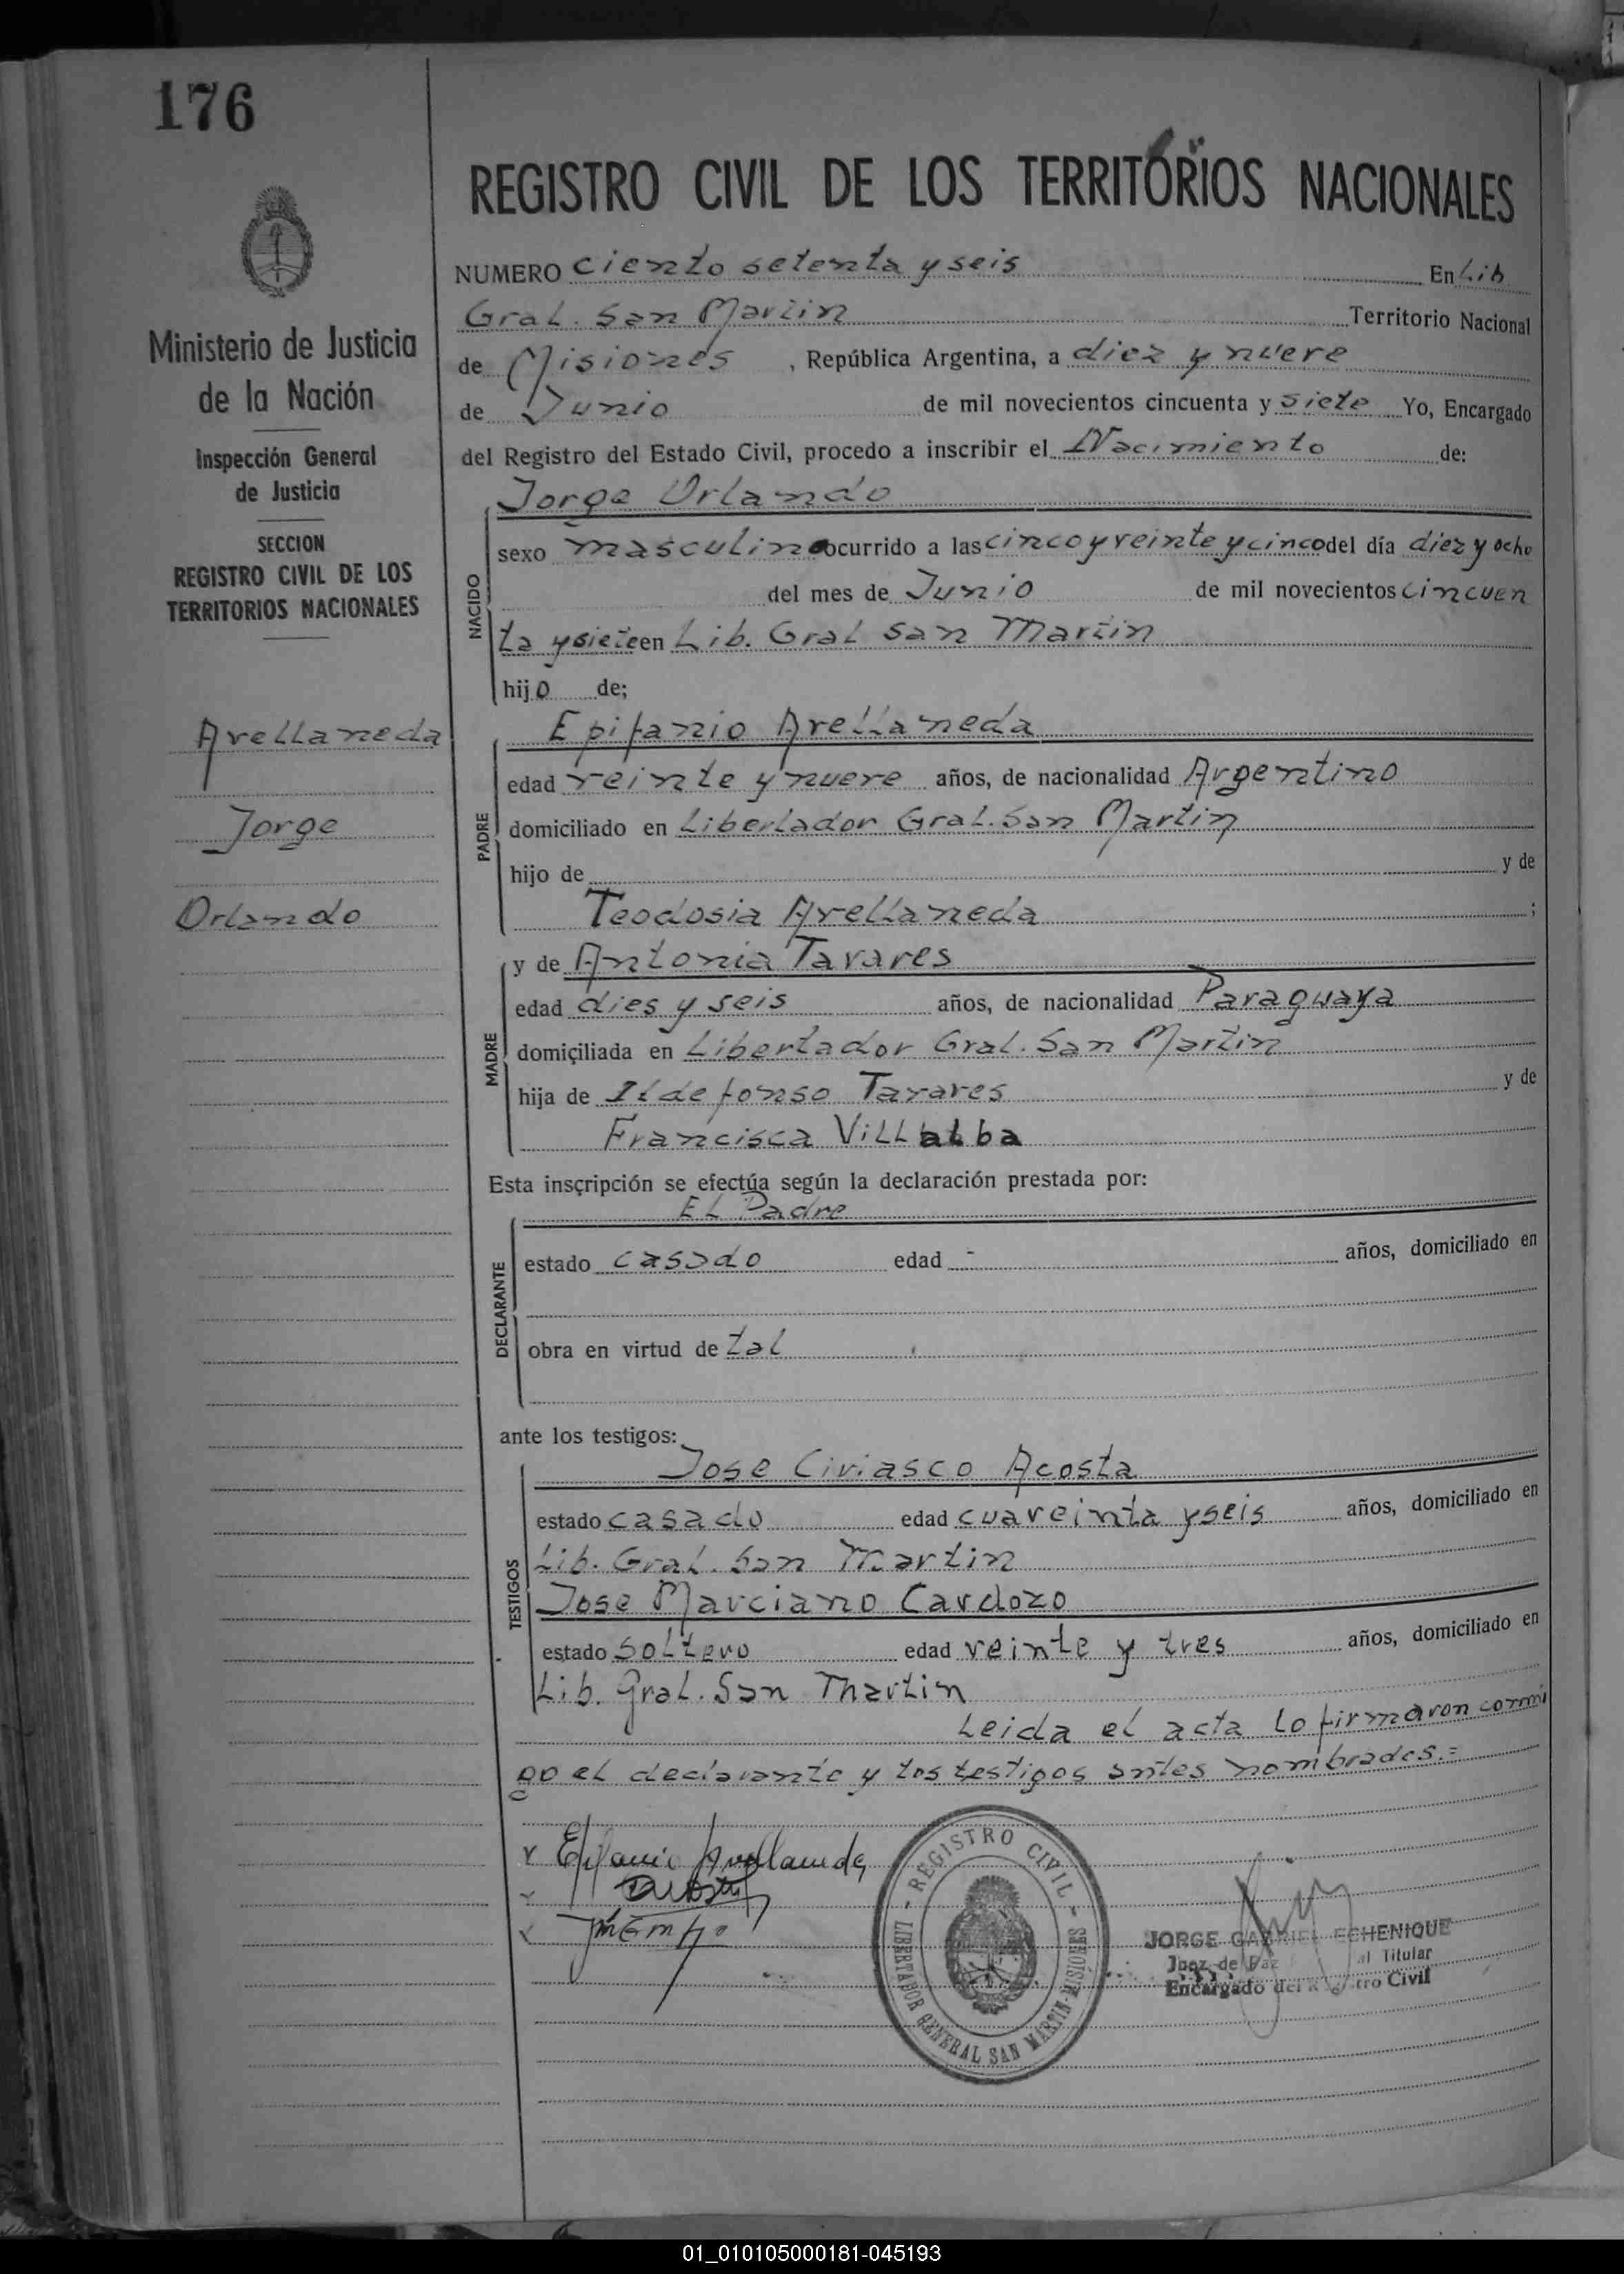 176
REGISTRO CIVIL DE LOS TERRITORIOS NACIONALES
Ministerio de Justicia
de la Nación
Inspección General
de Justicia
SECCION
REGISTRO CIVIL DE LOS
TERRITORIOS NACIONALES
Avellaneda
Jorge
Orlando
NUMERO ciento setenta y seis En Lib
Gral. San Martin Territorio Nacional
de Misiones, República Argentina, a diez y nueve
de Junio de mil novecientos cincuenta y siete Yo, Encargado
del Registro del Estado Civil, procedo a inscribir el Nacimiento de:
NACIDO
Jorge Orlando
sexo masculino ocurrido a las cinco y veinte y cinco del día diez y ocho
del mes de Junio de mil novecientos cincuen
ta y siete en Lib. Gral San Martin
hijo de;
PADRE
Epifanio Avellaneda
edad veinte y nueve años, de nacionalidad Argentino
domiciliado en Libertador Gral. San Martin
hijo de y de
Teodosia Avellaneda ;
MADRE
y de Antonia Tavares
edad dies y seis años, de nacionalidad Paraguaya
domiciliada en Libertador Gral. San Martin
hija de Ildefonso Tavares y de
Francisca Villalba
Esta inscripción se efectúa según la declaración prestada por:
DECLARANTE
El Padre
estado casado edad - años, domiciliado en
obra en virtud de tal
ante los testigos:
TESTIGOS
Jose Civiasco Acosta
estado casado edad cuareinta y seis años, domiciliado en
Lib. Gral. San Martin
Jose Marciano Cardozo
estado soltero edad veinte y tres años, domiciliado en
Lib. Gral. San Martin
Leida el acta lo firmaron conmi
go el declarante y los testigos antes nombrados.=
Epifanio Avellaneda
REGISTRO CIVIL
LIBERTADOR GENERAL SAN MARTIN-MISIONES
JORGE GABRIEL ECHENIQUE
Juez de Paz Titular
Encargado del Registro Civil
01_010105000181-045193